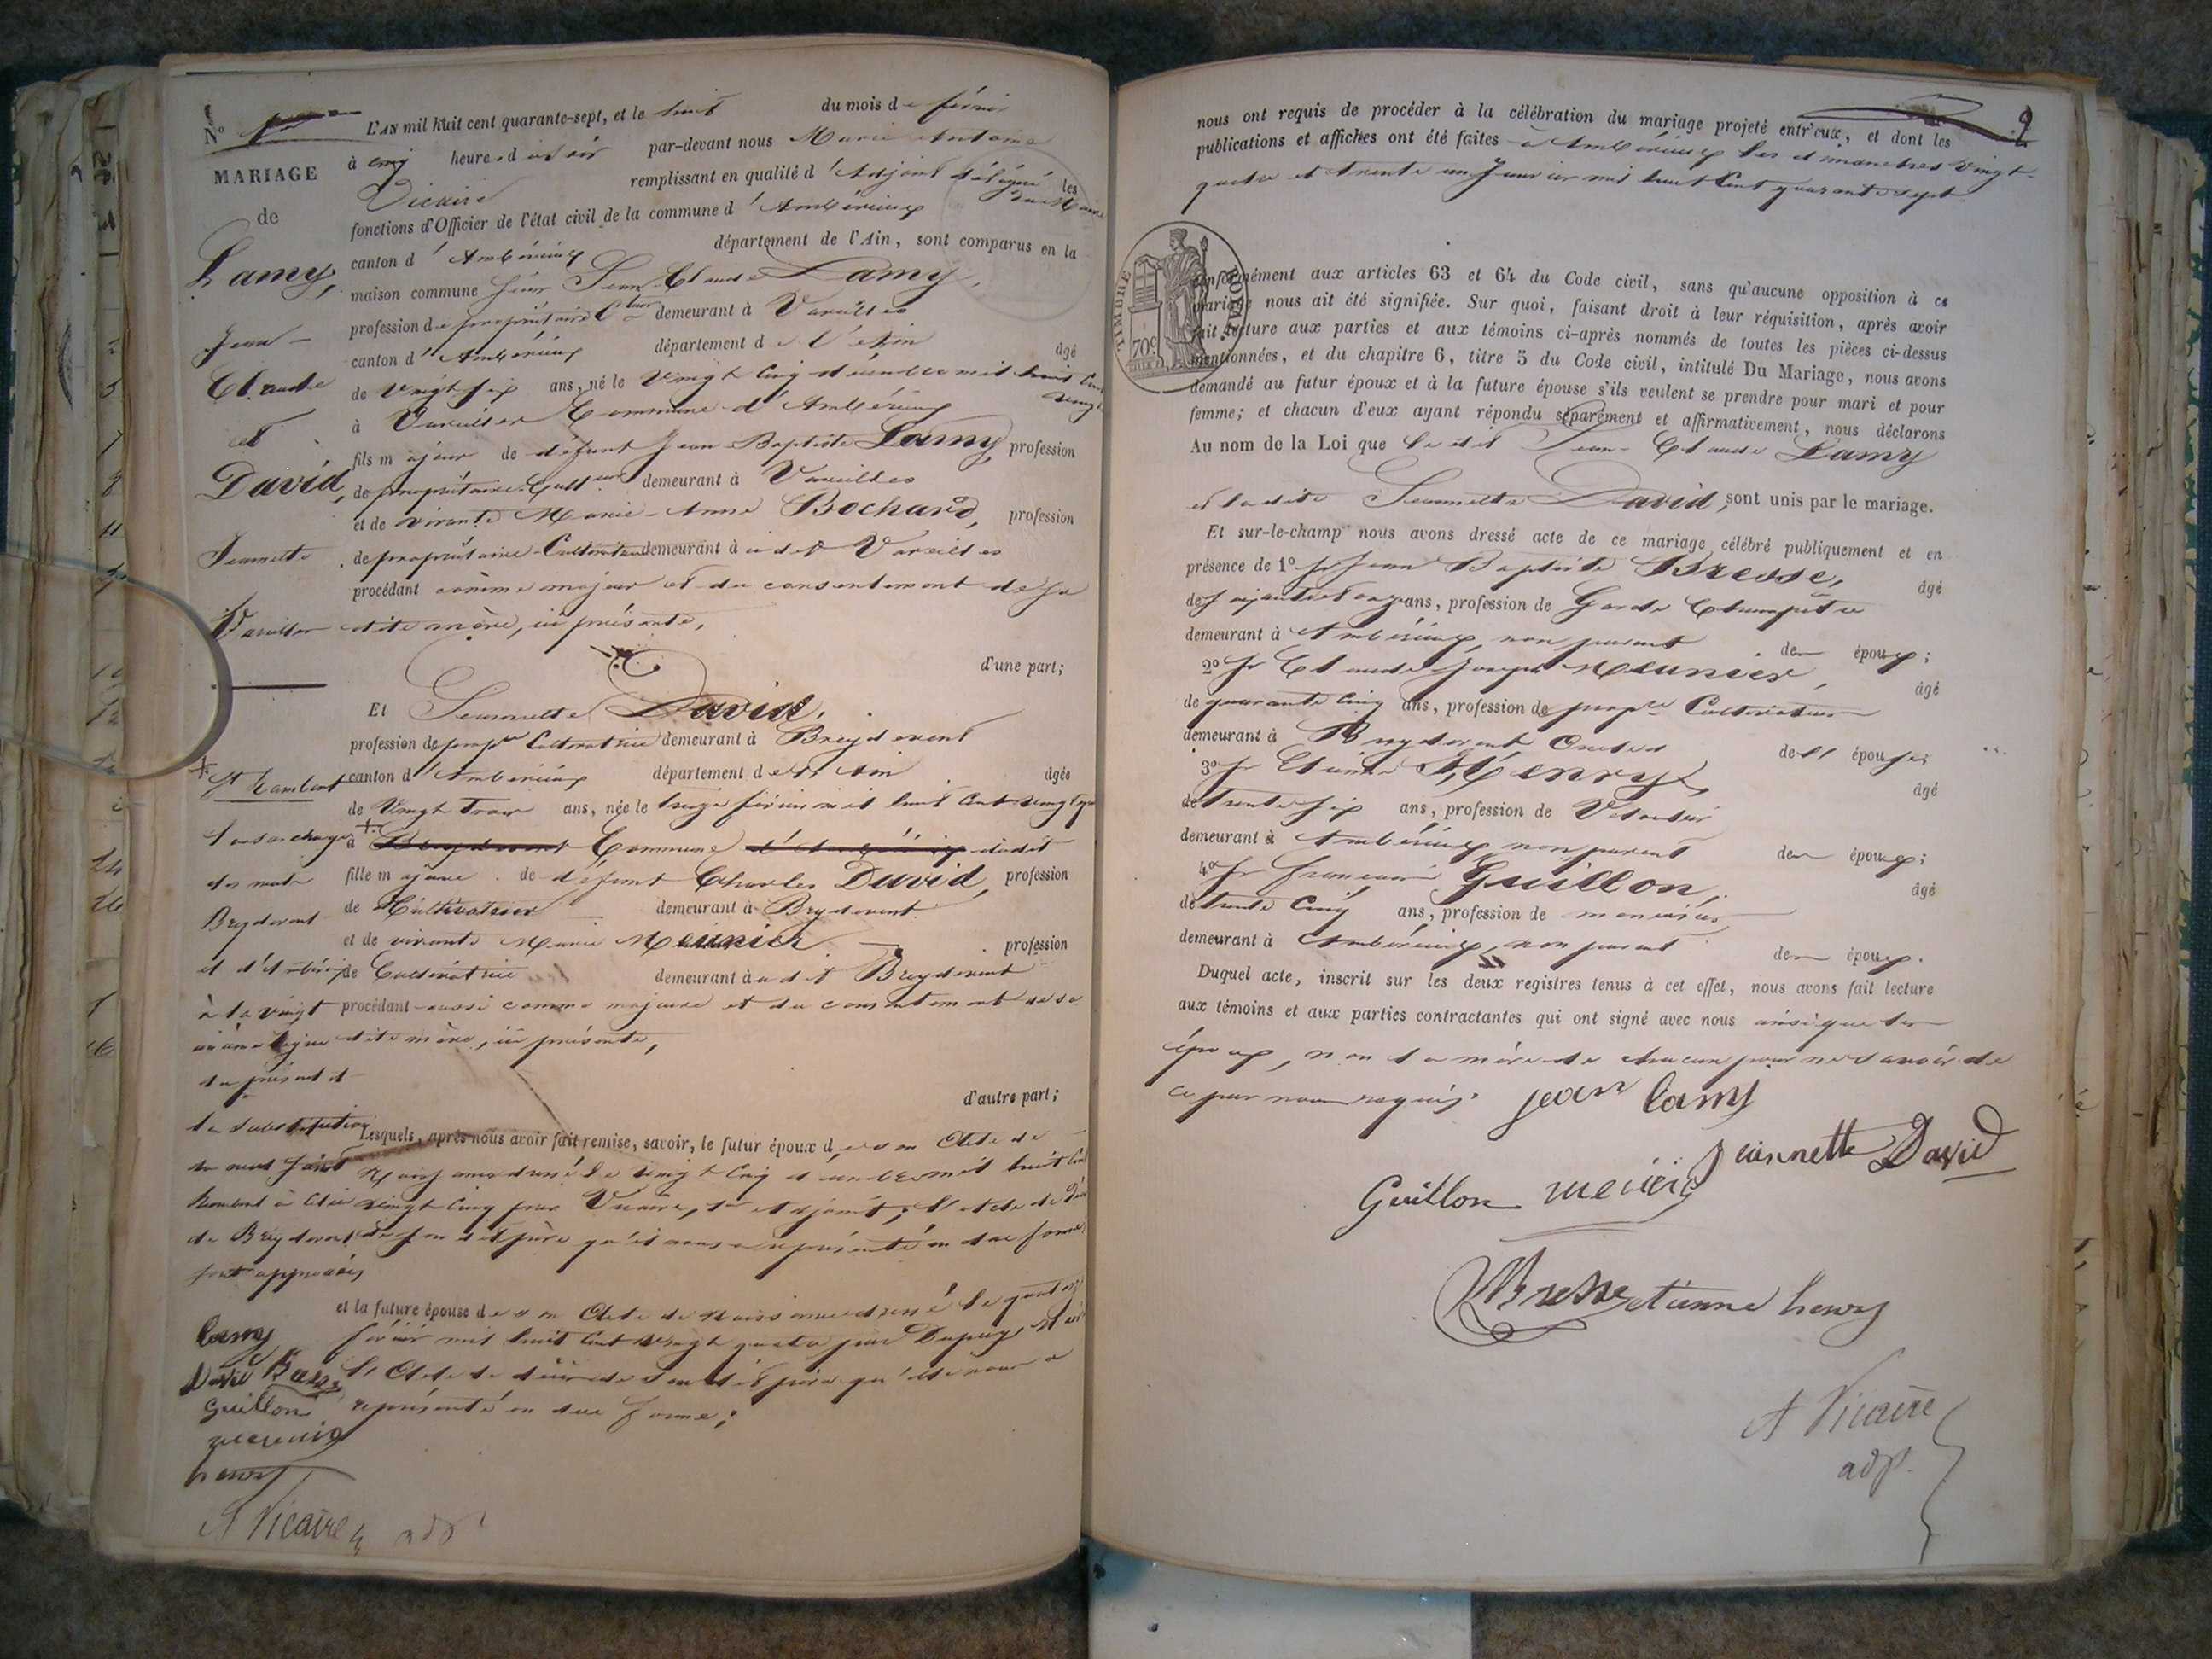 N°
MARIAGE
de
Lamy,
Jean-
Claude
et
David,
Jeannette
L'AN mil huit cent quarante-sept, et le huit du mois de février
à cinq heures du soir par-devant nous Marie Antoine
Vicaire remplissant en qualité d'Adjoint délégué les
fonctions d'Officier de l'état civil de la commune d'Ambérieux
canton d'Ambérieux département de l'Ain, sont comparus en la
maison commune sieur Jean-Claude Lamy,
profession de propriétaire Cteur demeurant à Vareilles
canton d'Ambérieux département de l'Ain âgé
de vingt six ans, né le vingt cinq décembre mil huit cent vingt
à Vareilles Commune d'Ambérieux
fils majeur de défunt Jean Baptiste Lamy, profession
de propriétaire Cultteur demeurant à Vareilles
et de vivante Marie-Anne Bochard, profession
de propriétaire-Cultivateur demeurant à Vareilles
procédant comme majeur et du consentement de sa
dite mère, ici présente,
d'une part;
Et Jeannette David,
profession de Cultivatrice demeurant à Breydevent
canton d'Ambérieux département de l'Ain âgée
de vingt trois ans, née le treize février mil huit cent vingt
à Breydevent Commune d'Ambérieux dudit
fille majeure de défunt Charles David, profession
de Cultivateur demeurant à Breydevent
et de vivante Marie Meunier profession
de Cultivatrice demeurant audit Breydevent
procédant aussi comme majeure et du consentement de sa
dite mère, ici présente,
d'autre part;
St Rambert
la surcharge
des mots
Breydevent
et d'Ambérieux
à la vingt
ligne
du présent
la substitution
de Breydevent
sont approuvés
Lesquels, après nous avoir fait remise, savoir, le futur époux de son Acte de
Naissance dressé le vingt cinq décembre mil huit cent
vingt par Vicaire, adjoint; l'acte de décès
de son dit père qu'il nous a représenté en due forme
et la future épouse de son Acte de Naissance dressé le quatorze
février mil huit cent vingt quatre par Dupuy,
l'Acte de décès de son dit père qu'elle nous a
représenté en due forme;
lamy
David Bresse
Guillon
meunier
henry
A Vicaire adjt
2
nous ont requis de procéder à la célébration du mariage projeté entr'eux, et dont les
publications et affiches ont été faites à Ambérieux les dimanches vingt-
quatre et trente un Janvier mil huit cent quarante sept
TIMBRE ROYAL
70c
conformément aux articles 63 et 64 du Code civil, sans qu'aucune opposition à ce
mariage nous ait été signifiée. Sur quoi, faisant droit à leur réquisition, après avoir
fait lecture aux parties et aux témoins ci-après nommés de toutes les pièces ci-dessus
mentionnées, et du chapitre 6, titre 5 du Code civil, intitulé Du Mariage, nous avons
demandé au futur époux et à la future épouse s'ils veulent se prendre pour mari et pour
femme; et chacun d'eux ayant répondu séparément et affirmativement, nous déclarons
Au nom de la Loi que ledit Jean-Claude Lamy
et ladite Jeannette David, sont unis par le mariage.
Et sur-le-champ nous avons dressé acte de ce mariage célébré publiquement et en
présence de 1° sr Jean Baptiste Bresse, âgé
de ans, profession de Garde Champêtre
demeurant à Ambérieux, non parent des époux;
2° sr Claude Joseph Meunier, âgé
de quarante cinq ans, profession de Cultivateur
demeurant à Breydevent Oncle de l'épouse;
3° sr Etienne Henry, âgé
de trente six ans, profession de
demeurant à Ambérieux, non parent des époux;
4° sr francois Guillon, âgé
de trente cinq ans, profession de menuisier
demeurant à Ambérieux, non parent des époux.
Duquel acte, inscrit sur les deux registres tenus à cet effet, nous avons fait lecture
aux témoins et aux parties contractantes qui ont signé avec nous ainsi que les
époux, non la mère de chacun pour ne savoir de
ce par nous requis.
jean lamy
jeannette David
Guillon meunier
Bresse etienne henry
A Vicaire
adjt.